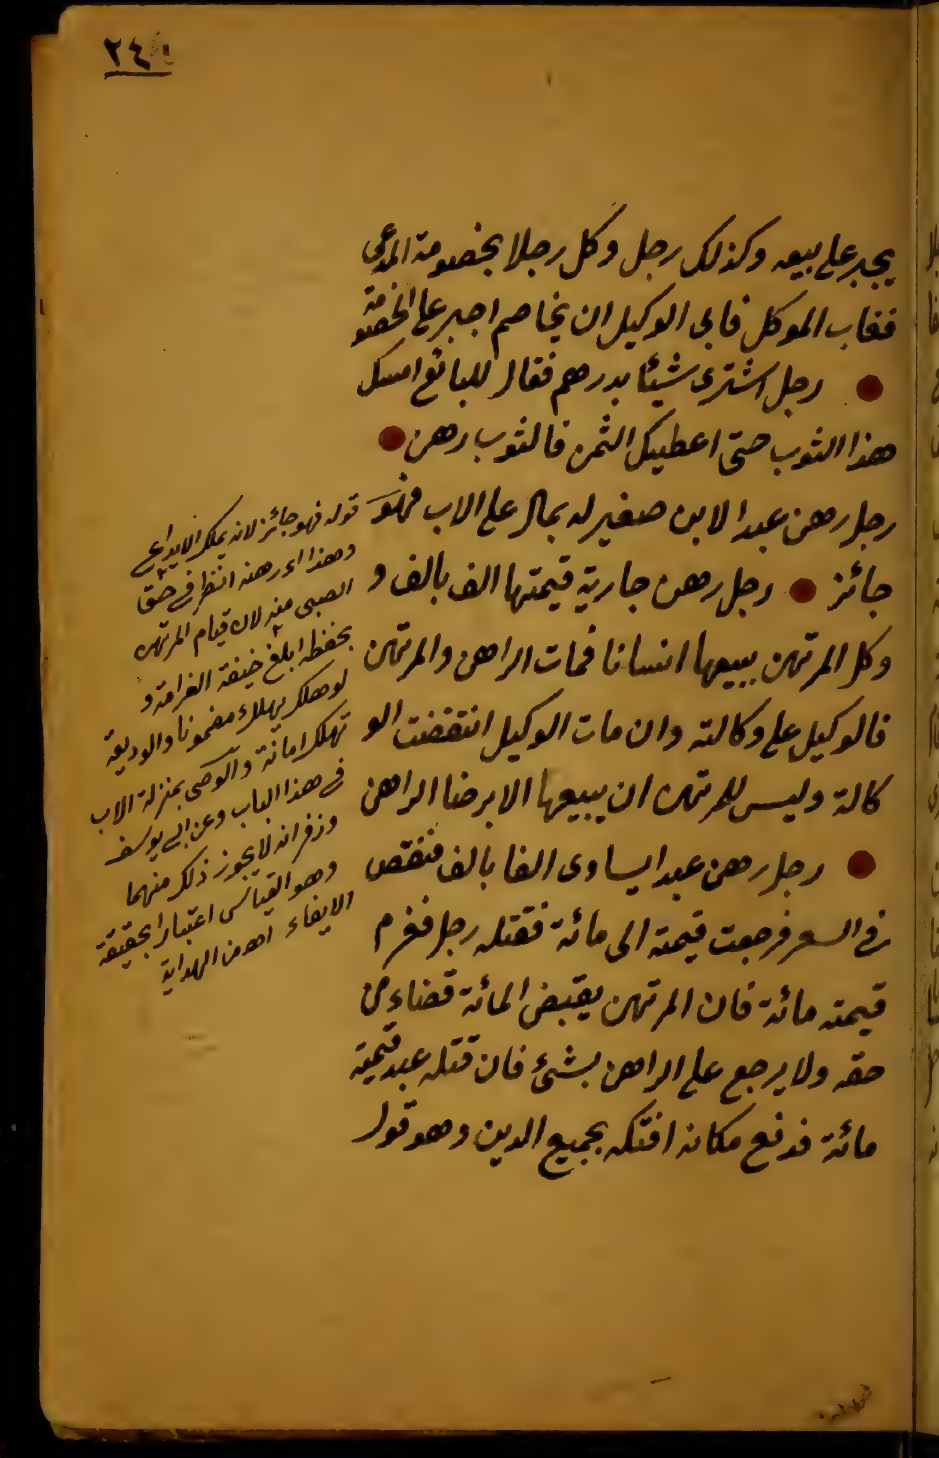 ٢٤
يجبر على بيعه وكذلك رجل وكل رجلا بخصومة المدعى
فغاب الموكل فابى الوكيل ان يخاصم اجبر على الخصومة
رجل اشترى شيئا بدرهم فقال للبائع امسك
هذا الثوب حتى اعطيك الثمن فالثوب رهن
رجل رهن عبدا لابن صغير له بمال على الاب فهو
جائز رجل رهن جارية قيمتها الف بالف و
وكل المرتهن ببيعها انسانا فمات الراهن والمرتهن
فالوكيل على وكالته وان مات الوكيل انتقضت الو
كالة وليس للمرتهن ان يبيعها الا برضا الراهن
رجل رهن عبدا يساوى الفا بالف فنقص
فى السعر فرجعت قيمته الى مائة فقتله رجل فغرم
قيمته مائة فان المرتهن يقبض المائة قضاء من
حقه ولا يرجع على الراهن بشئ فان قتله عبد قيمته
مائة فدفع مكانه افتكه بجميع الدين وهو قول
قوله فهو جائز لانه يملك الايداع
وهذا اى رهنه انظر فى حق
الصبى منه لان قيام المرتهن
بحفظه ابلغ خيفة الغرامة و
لو هلك يهلك مضمونا والوديعة
تهلك امانة والوصى بمنزلة الاب
فى هذا الباب وعن ابى يوسف
وزفر انه لا يجوز ذلك منهما
وهو القياس اعتبارا بحقيقة
الايفاء اهـ من الهداية